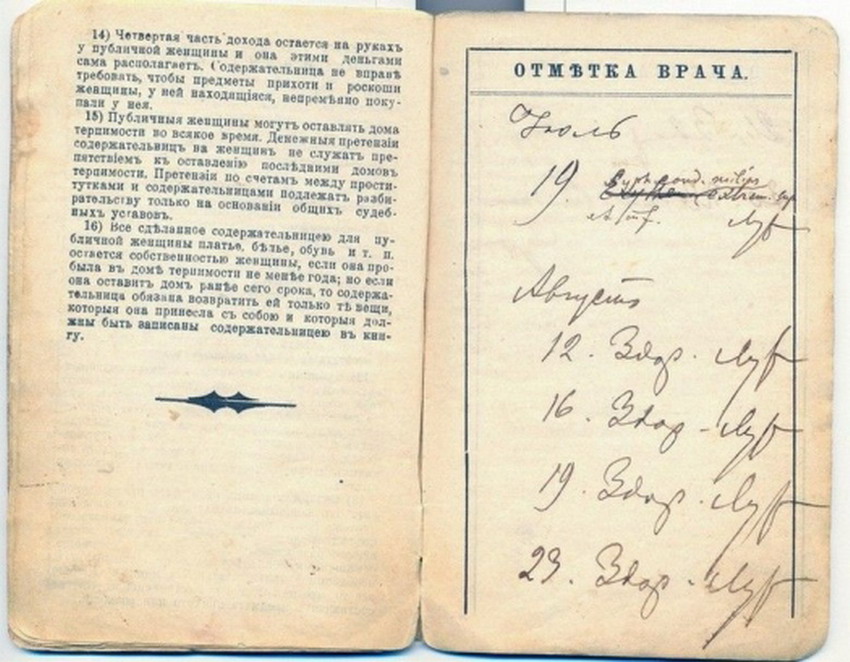 14) Четвертая часть дохода остается на рукахъ
у публичной женщины и она этими деньгами
сама располагаетъ. Содержательница не вправѣ
требовать, чтобы предметы прихоти и роскоши
женщины, у ней находящiяся, непремѣнно поку-
пали у нея.
15) Публичныя женщины могутъ оставлять дома
терпимости во всякое время. Денежныя претензiи
содержательницъ на женщинъ не служатъ пре-
пятствiемъ къ оставленiю послѣдними домовъ
терпимости. Претензiи по счетамъ между прости-
тутками и содержательницами подлежатъ разби-
рательству только на основанiи общихъ судеб-
ныхъ уставовъ.
16) Все сдѣланное содержательницею для пу-
бличной женщины платье, бѣлье, обувь и т. п.
остается собственностью женщины, если она про-
была въ домѣ терпимости не менѣе года; но если
она оставитъ домъ ранѣе сего срока, то содержа-
тельница обязана возвратить ей только тѣ вещи,
которыя она принесла съ собою и которыя дол-
жны быть записаны содержательницею въ кни-
гу.
ОТМѢТКА ВРАЧА.
Iюль
19.
Августъ
12. Здор.
16. Здор.
19. Здор.
23. Здор.